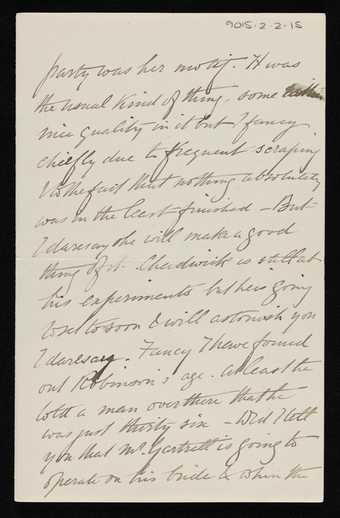 9015-2-2-15
party was her motif. It was
the usual kind of thing, some rather
nice quality in it but I fancy
chiefly due to frequent scraping
& to the fact that nothing absolutely
was in the least finished – But
I daresay she will make a good
thing of it. Chadwick is still at
his experiments but he is going
to soon & will astonish you
I daresay. Fancy I have found
out Robinson's age. At least he
told a man over there that he
was just thirty six – Did I tell
you that Mr. Gartrett is going to
operate on his bride & when the